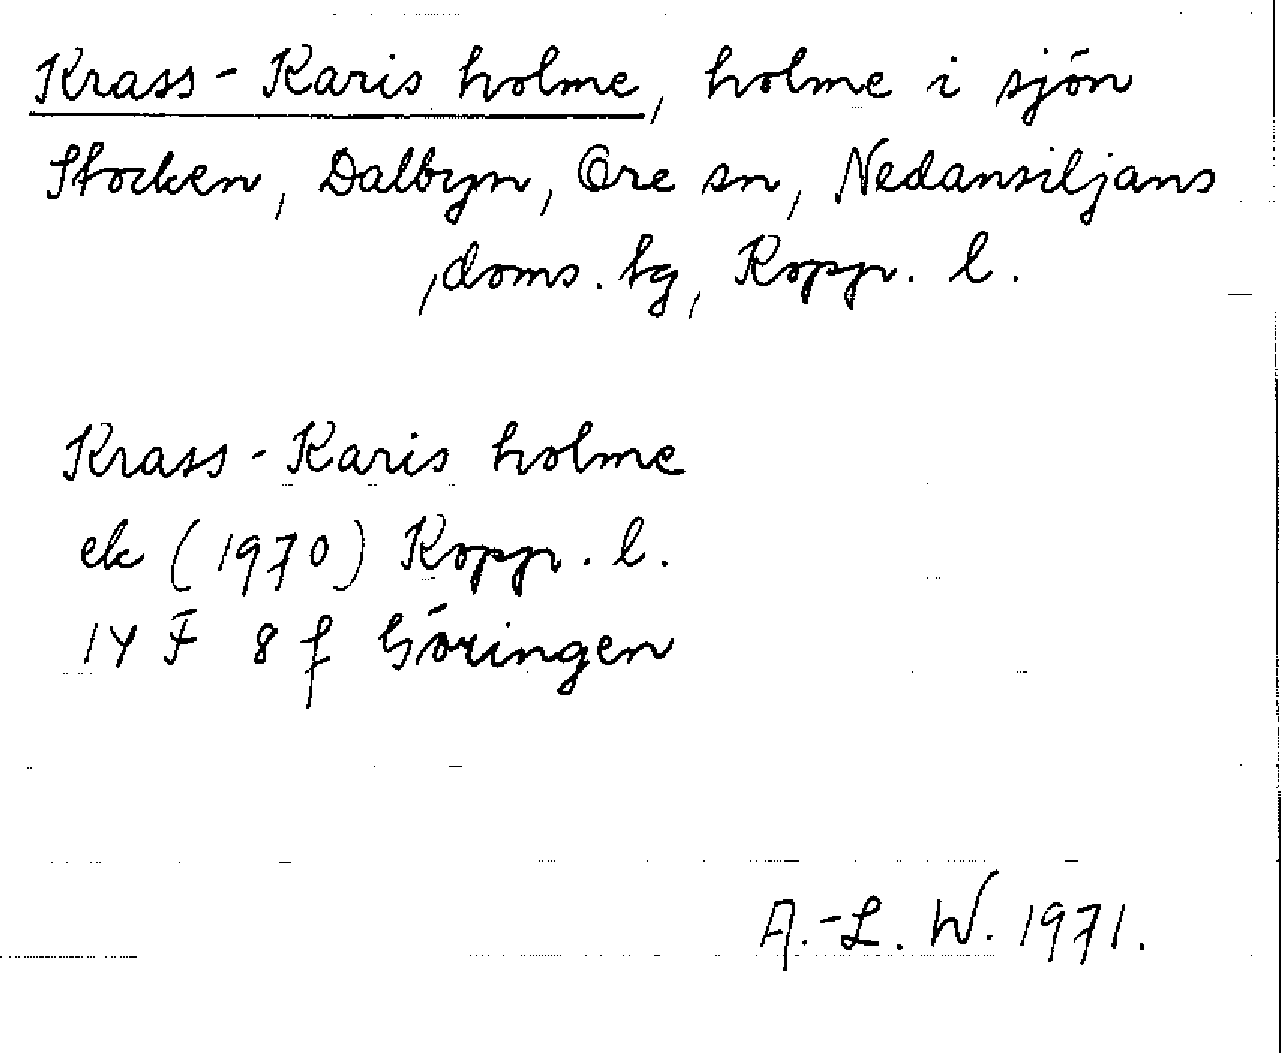 Krass-Karis holme, holme i sjön
Stocken, Dalbyn, Ore sn, Nedansiljans
doms. tg, Koppr. l.
Krass-Karis holme
ek (1970) Koppr. l.
14 F 8 f Göringen
A.-L. W. 1971.